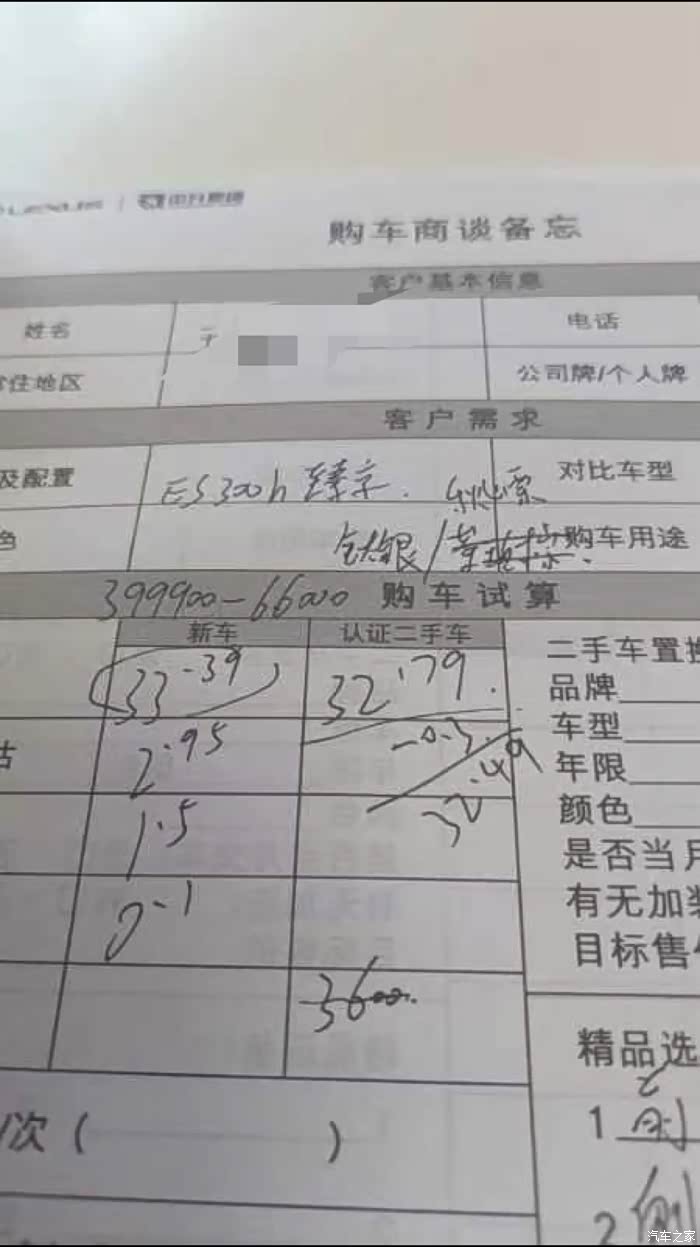 LEXUS | 中升集团
购车商谈备忘
客户基本信息
姓名 于 电话
住地区 公司牌/个人牌
客户需求
及配置 ES300h 臻享. 对比车型
色 钛银/ 购车用途
399900-66000 购车试算
新车 认证二手车
33.39 32.79.
2.95 -0.3.
32.49
1.5
0.1
3600.
二手车置换
品牌
车型
年限
颜色
是否当月
有无加装
目标售价
次( )
精品选
1 前
2 侧
汽车之家